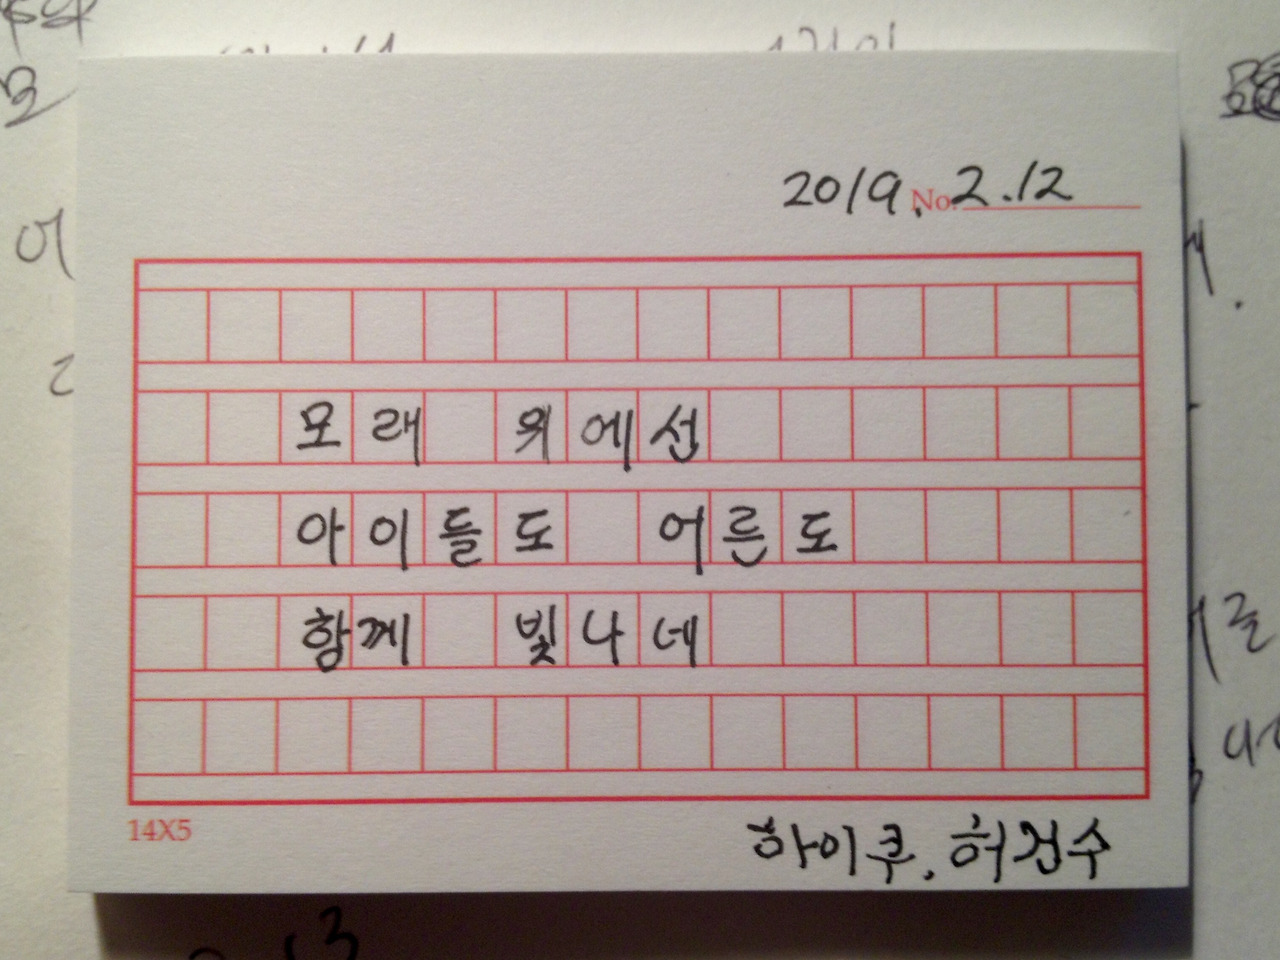 2019. No. 2.12
모래 위에선
아이들도 어른도
함께 빛나네
14X5
하이쿠, 허검수